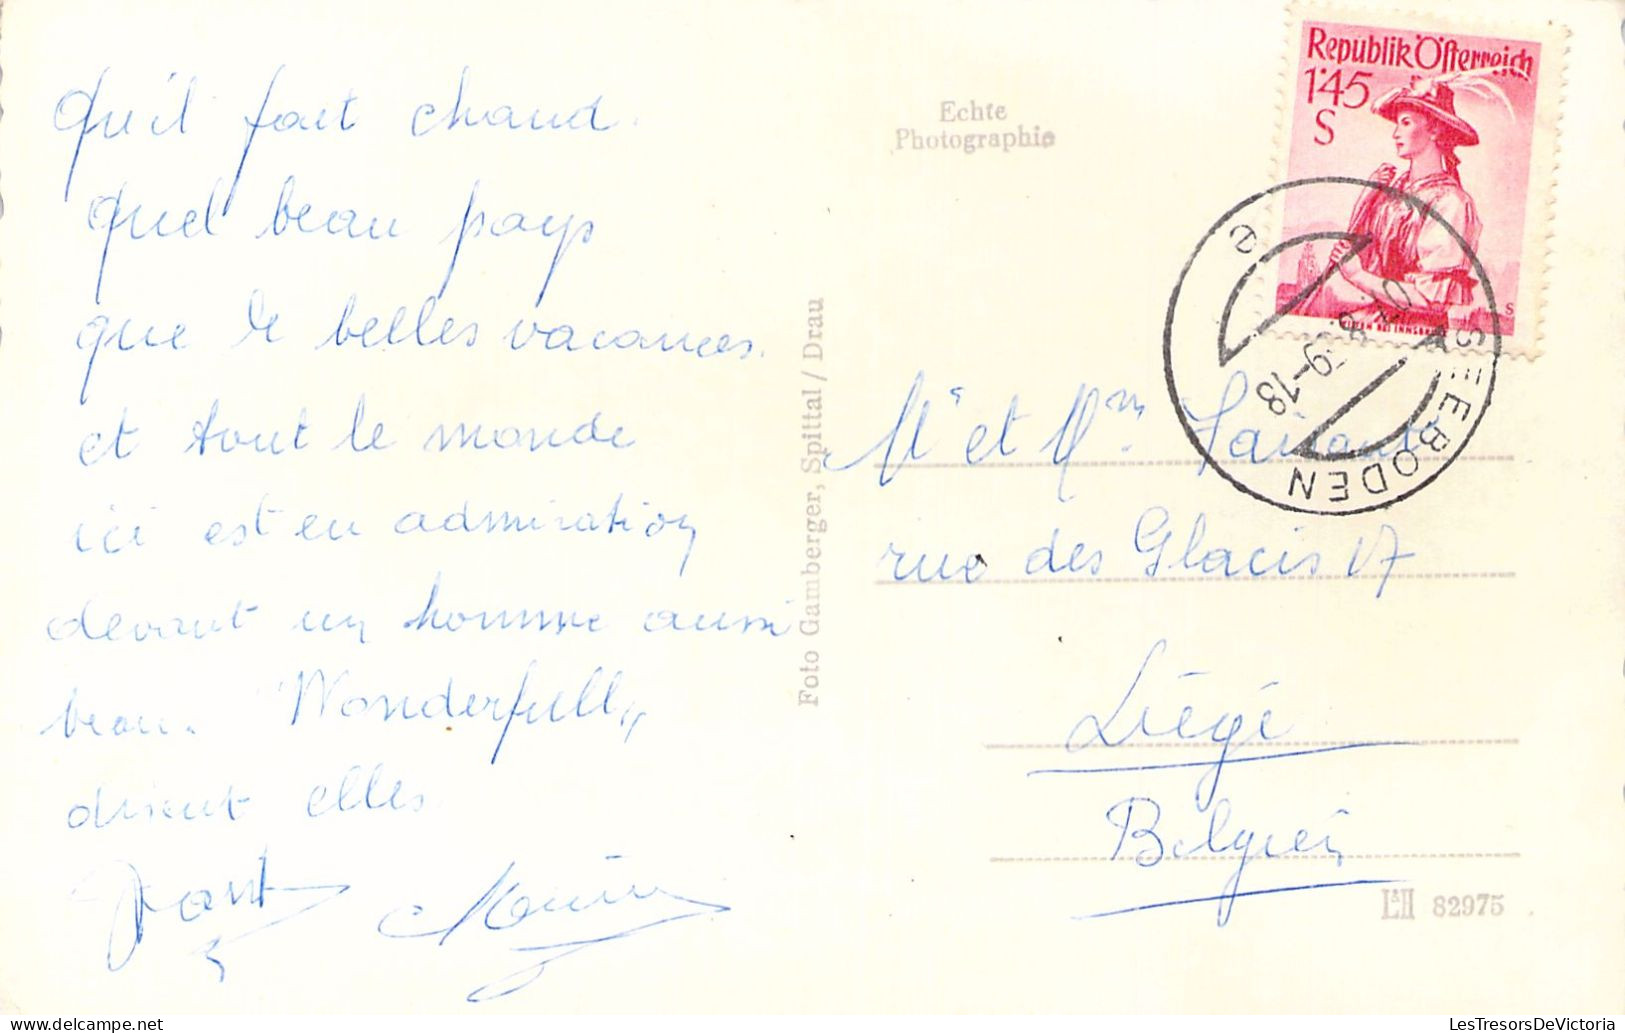 qu'il fait chaud.
quel beau pays
que de belles vacances.
et tout le monde
ici est en admiration
devant un homme aussi
beau. "Wonderfull"
disent elles.
Foto Gamberger, Spittal / Drau
Echte
Photographie
Republik Österreich
1'45
S
SEEBODEN
e
-18
Mr et Mme
rue des Glacis 17
Liége
Belgien
L&H 82975
LesTresorsDeVictoria